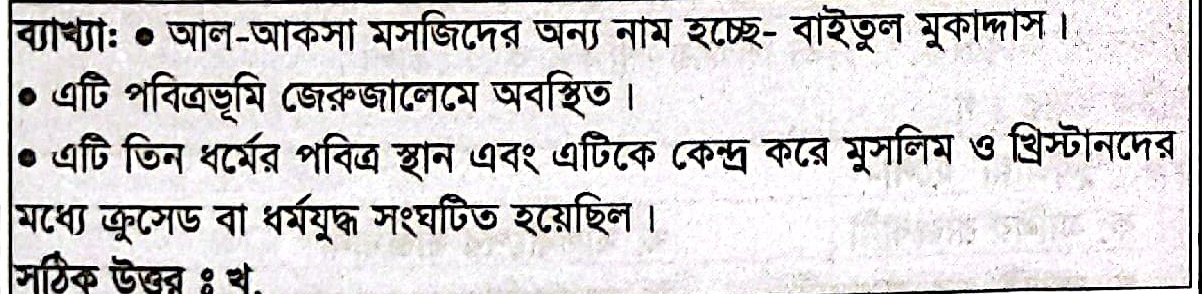 ব্যাখ্যা: ● আল-আকসা মসজিদের অন্য নাম হচ্ছে- বাইতুল মুকাদ্দাস।
● এটি পবিত্রভূমি জেরুজালেমে অবস্থিত।
● এটি তিন ধর্মের পবিত্র স্থান এবং এটিকে কেন্দ্র করে মুসলিম ও খ্রিস্টানদের
মধ্যে ক্রুসেড বা ধর্মযুদ্ধ সংঘটিত হয়েছিল।
সঠিক উত্তর ঃ খ.